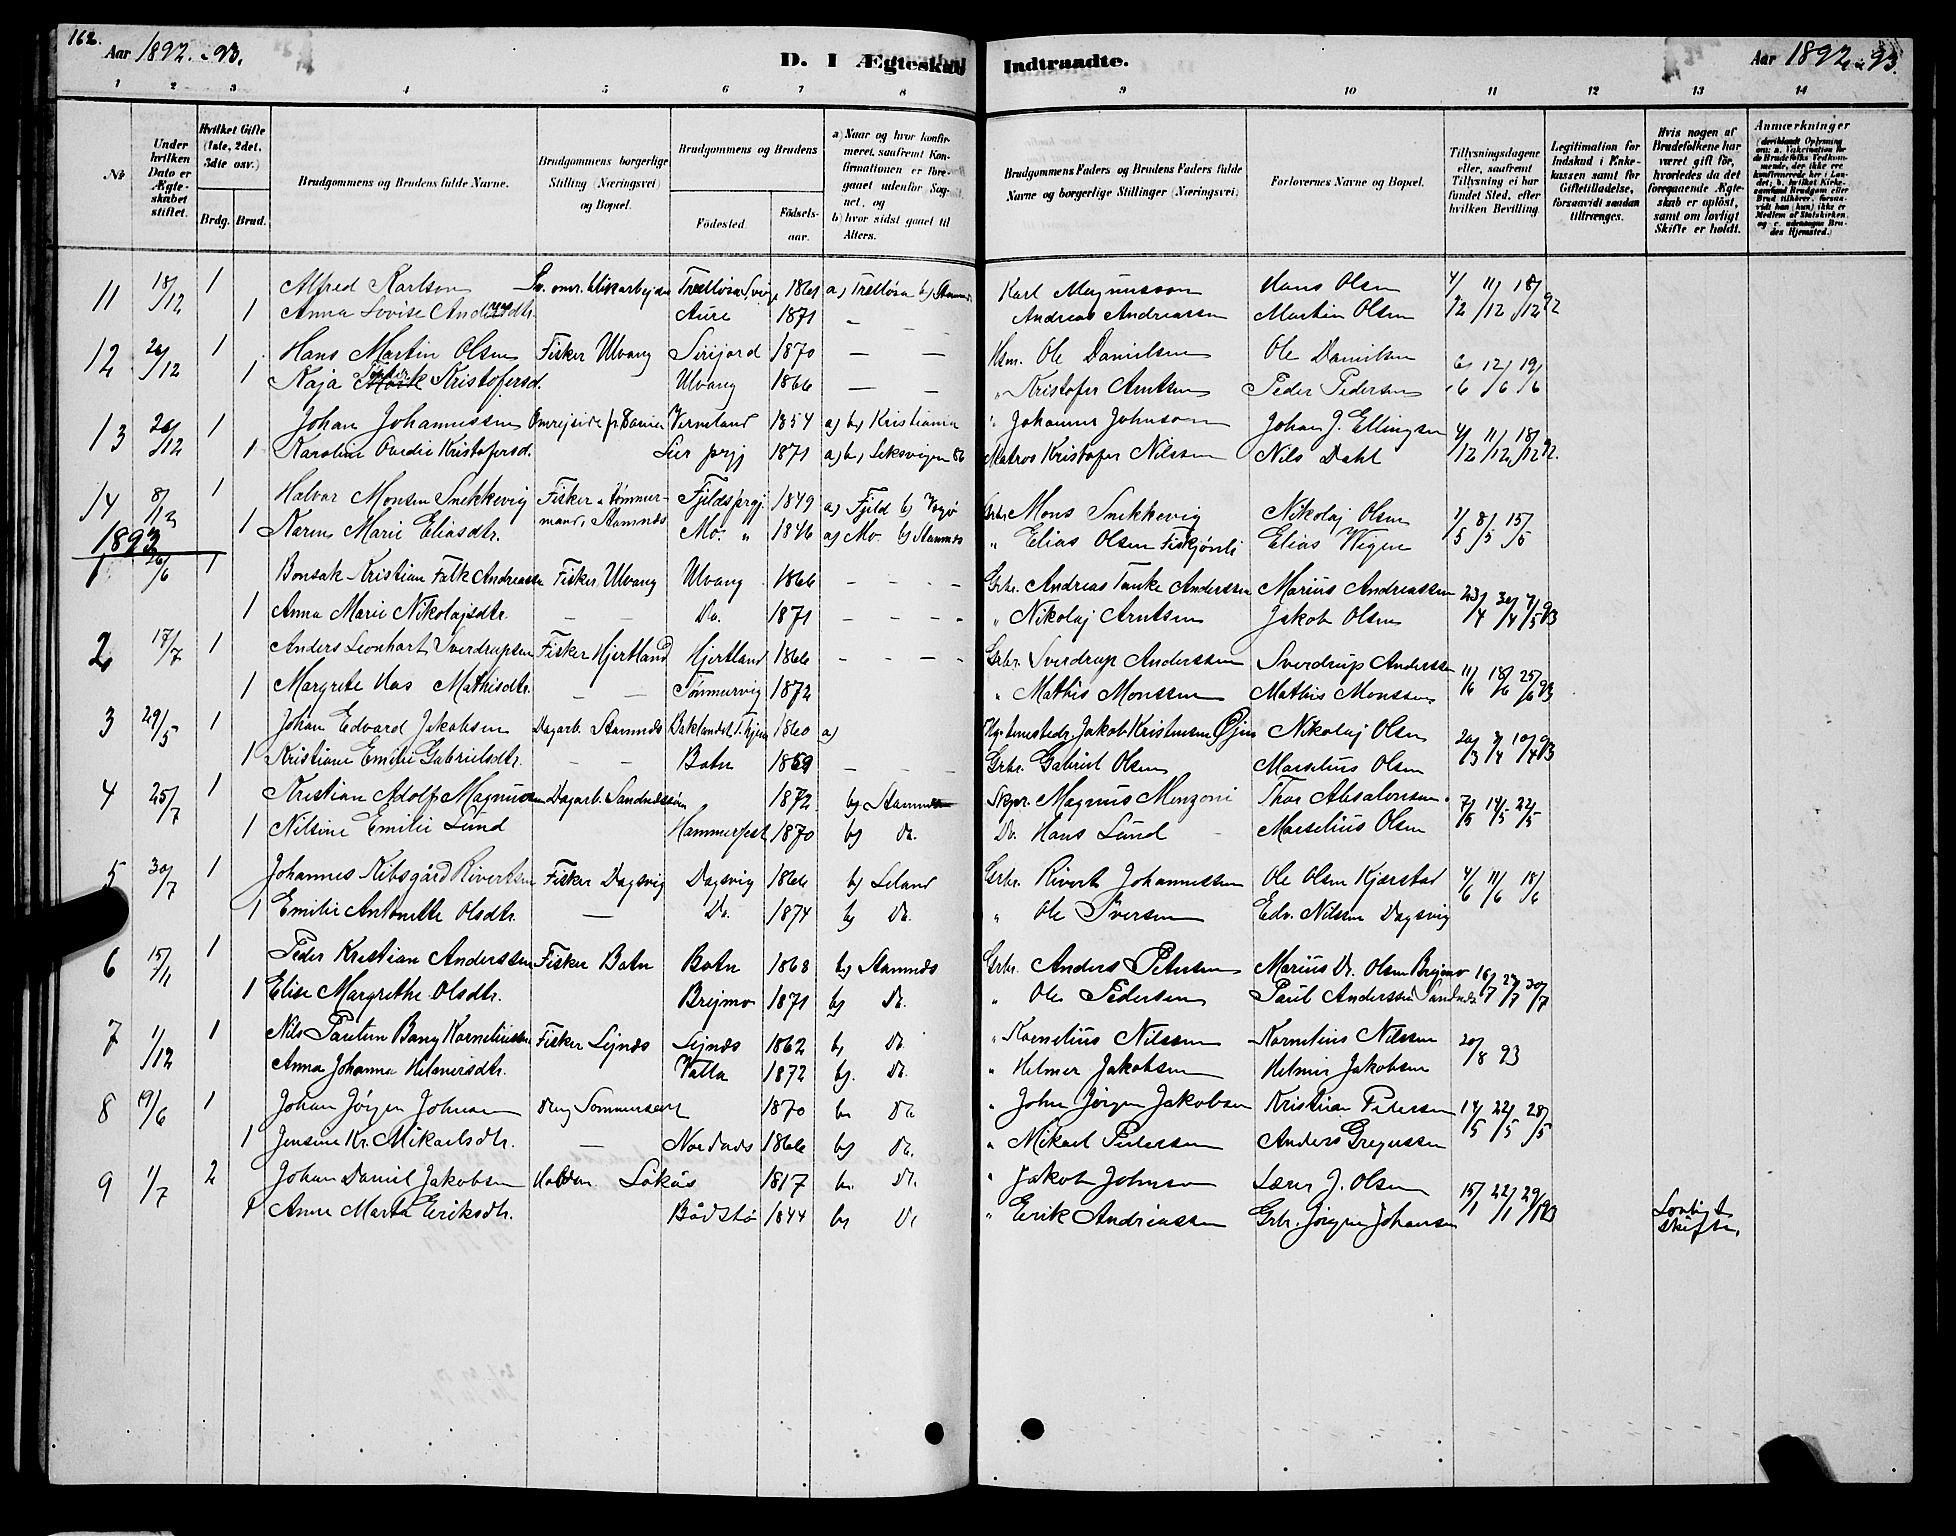 162.
Aar 1892-93.
D. I Ægteskab Indtraadte.
Aar 1892-93.
1 2 3 4 5 6 7 8 9 10 11 12 13 14
No
Under hvilken Dato er Ægteskabet stiftet.
Hvilket Gifte (1ste, 2det, 3die osv.)
Brdg. Brud.
Brudgommens og Brudens fulde Navne.
Brudgommens borgerlige Stilling (Næringsvei) og Bopæl.
Brudgommens og Brudens
Fødested. Fødselsaar.
a) Naar og hvor konfirmeret, saafremt Konfirmationen er foregaaet udenfor Sognet, og
b) hvor sidst gaaet til Alters.
Brudgommens Faders og Brudens Faders fulde Navne og borgerlige Stillinger (Næringsvei)
Forlovernes Navne og Bopæl.
Tillysningsdagene eller, saafremt Tillysning ei har fundet Sted, efter hvilken Bevilling
Legitimation for Indskud i Enkekassen samt for Giftetilladelse, forsaavidt saadan tiltrænges.
Hvis nogen af Brudefolkene har været gift før, hvorledes da det foregaaende Ægteskab er opløst, samt om lovligt Skifte er holdt.
Anmærkninger
11 18/12 1 Alfred Karlson Sv. omr. blikarbejder 1861 a) Trellosa b) Stamnæs Karl Magnusson Hans Olsen 4/12 11/12 18/12 92
1 Anna Lovise Andreasdtr. Aure 1871 - - - Andreas Andreassen Martin Olsen
12 26/12 1 Hans Martin Olsen Fisker Ulvang 1870 - - Hsm. Ole Danielsen Ole Danielsen 6/6 12/6 19/6
1 Kaja Kristofersd. Ulvang 1866 - - " Kristofer Arntsen Peder Pedersen
13 26/12 1 Johan Johannessen Vermeland 1854 a) b) Kristiania " Johannes Johnson Johan J. Ellingsen 4/12 11/12 18/12 92.
1 Karoline Kristofersd. 1871 a) b) Leksvigen 86 Matros Kristofer Nilssen Nils Dahl
14 8/12 1 Halvor Monsen Snekkevig Fisker & Tømmermand, Stamnæs Fjelds prgj. 1849 a) Fjeld b) Grbr. Mons Snekkevig Nikolaj Olsen 1/5 8/5 15/5
1 Karen Marie Eliasdtr. Mo. " 1846 a) Mo. b) Stamnæs " Elias Olsen Elias Wigen
1893
1 26/6 1 Bonsak Kristian Falk Andreassen Fisker Ulvang Ulvang 1866 - - - - Grbr. Andreas Tanke Anderssen Marius Andreassen 23/4 30/4 7/5 93
1 Anna Marie Nikolajsdtr. - - Do. 1871 - - - - " Nikolaj Arntsen Jakob Olsen
2 17/7 1 Anders Leonhart Sverdrupsen Fisker Hjertland Hjertland 1866 - - - - Grbr. Sverdrup Anderssen Sverdrup Anderssen 11/6 18/6 25/6 93
1 Margrete Mathisdtr. - - Tømmervig 1872 " Mathis Monssen Mathis Monssen
3 29/5 1 Johan Edvard Jakobsen Dagarb. Stamnæs 1860 a) Jakob Kristensen Nikolaj Olsen 26/3 3/4 10/4 93
1 Kristiane Emilie Gabrielsdtr. - - Botn 1869 - - - Grbr. Gabriel Olsen Marselius Olsen
4 25/7 1 Kristian Adolf Magnussen Dagarb. 1872 b) Stamnæs Skpr. Magnus Menzoni Thor Absalonsen 7/5 14/5 22/5
1 Nilsine Emilie Lund Hammerfest 1870 b) Do. Do. Hans Lund Marselius Olsen
5 30/7 1 Johannes Kibsgård Rivertsen Fisker Dagsvig Dagsvig 1866 b) Leland Grbr. Rivert Johannessen Ole Olsen Kjærstad 4/6 11/6 18/6
1 Emilie Antonette Olsdtr. - Do. 1874 b) Do. " Ole Iversen Edv. Nilssen Dagsvig
6 15/11 1 Peder Kristian Anderssen Fisker Botn Botn 1868 b) Stamnæs Grbr. Anders Petersen Marius Dr. Olsen Brejmo 16/7 23/7 30/7
1 Elise Margrethe Olsdtr. Brejmo 1871 b) Do. " Ole Pedersen Paul Anderssen Sandnæs
7 1/12 1 Nils Bang Korneliussen Fisker Lejnæs Lejnæs 1862 b) Do. " Kornelius Nilssen Kornelius Nilssen 20/8 93
Anna Johanna Helmersdtr. Valla 1872 b). Do. " Helmer Jakobsen Helmer Jakobsen
8 19/6 1 Johan Jørgen Johnsen Sommersæt 1870 b) Do " John Jørgen Jakobsen Kristian Petersen 14/5 22/5 28/5
1 Jensine Kr. Mikaelsdtr. - Nordnæs 1866 b) Do. " Mikael Pedersen Anders Gregussen
9 1/7 2 Johan Daniel Jakobsen Løkås 1817 b. Do. " Jakob Johnsen Lærer J. Olsen 15/1 22/1 29/1 93
1 Anne Marta Eriksdtr. Bådstø 1844 b) Do " Erik Andreassen Grbr. Jørgen Johansen Lovligt skifte.